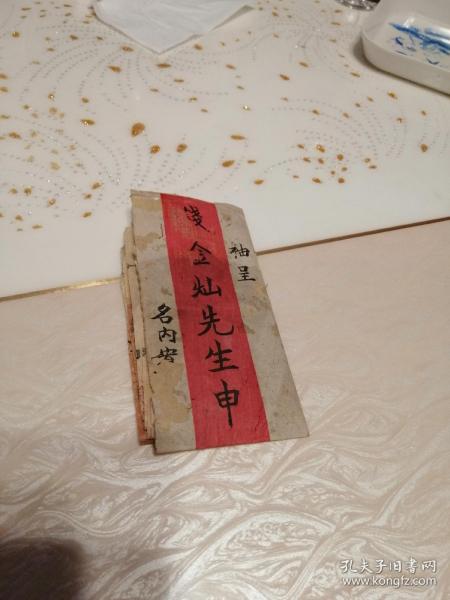 袖呈
金灿先生申
名内安
孔夫子旧书网
www.kongfz.com